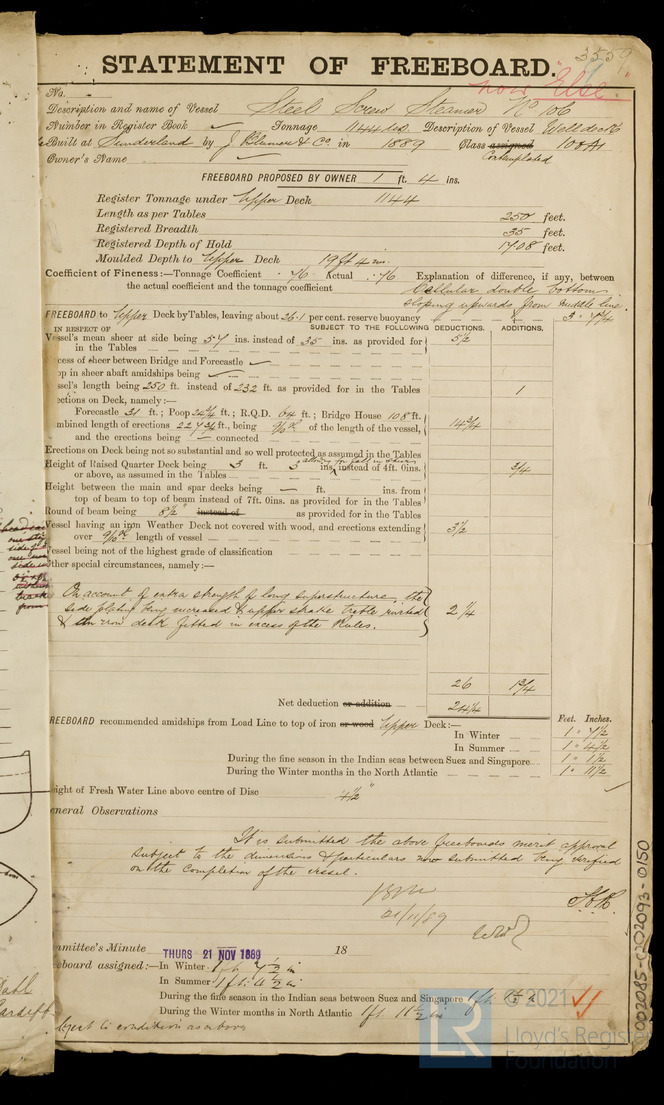 3559
STATEMENT OF FREEBOARD.
now "Elbe"
No.
Description and name of Vessel Steel Screw Steamer No 106
Number in Register Book Tonnage 1144 Description of Vessel Welldeck
Built at Sunderland by J Blumer & Co. in 1889 Class assigned 100A1
Contemplated
Owner's Name
FREEBOARD PROPOSED BY OWNER 1 ft. 4 ins.
Register Tonnage under Upper Deck 1144
Length as per Tables 250 feet.
Registered Breadth 35 feet.
Registered Depth of Hold 17.08 feet.
Moulded Depth to Upper Deck 19 ft 4 ins.
Coefficient of Fineness:—Tonnage Coefficient .76 Actual .76 Explanation of difference, if any, between
the actual coefficient and the tonnage coefficient Cellular double bottom
sloping upwards from middle line.
FREEBOARD to Upper Deck by Tables, leaving about 26.1 per cent. reserve buoyancy
IN RESPECT OF SUBJECT TO THE FOLLOWING DEDUCTIONS. ADDITIONS.
Vessel's mean sheer at side being 57 ins. instead of 35 ins. as provided for
in the Tables 5½
cess of sheer between Bridge and Forecastle
op in sheer abaft amidships being
ssel's length being 250 ft. instead of 232 ft. as provided for in the Tables 1
ections on Deck, namely:—
Forecastle 31 ft.; Poop 24¾ ft.; R.Q.D. 64 ft.; Bridge House 108 ft.
mbined length of erections 227¾ ft., being 9/10th of the length of the vessel, 14¾
and the erections being connected
Erections on Deck being not so substantial and so well protected as assumed in the Tables
Height of Raised Quarter Deck being 3 ft. 3 ins. instead of 4ft. 0ins. ¾
or above, as assumed in the Tables
Height between the main and spar decks being ft. ins. from
top of beam to top of beam instead of 7ft. 0ins. as provided for in the Tables
Round of beam being 8½" instead of as provided for in the Tables
Vessel having an iron Weather Deck not covered with wood, and erections extending
over 9/10th length of vessel 3½
Vessel being not of the highest grade of classification
Other special circumstances, namely:—
On account of extra strength of long superstructure, the
side plating being increased & upper strake treble riveted 2¼
& an iron deck fitted in excess of the Rules.
26 1¾
Net deduction or addition 24¼
Feet. Inches.
REEBOARD recommended amidships from Load Line to top of iron or wood Upper Deck:—
In Winter 1" 7½
In Summer 1" 4½
During the fine season in the Indian seas between Suez and Singapore 1" 1½
During the Winter months in the North Atlantic 1" 11½
eight of Fresh Water Line above centre of Disc 4½"
eneral Observations
It is submitted the above freeboards merit approval
subject to the dimensions & particulars now submitted being verified
on the completion of the vessel.
21/11/89
mmittee's Minute THURS 21 NOV 1889 18
eeboard assigned:—In Winter 1 ft 7½ in
In Summer 1 ft 4½ in
During the fine season in the Indian seas between Suez and Singapore 1 ft. 1½ in
During the Winter months in North Atlantic 1 ft 11½ in
bject to condition as above
002085-002093-0150
© 2021
Lloyd's Register
Foundation